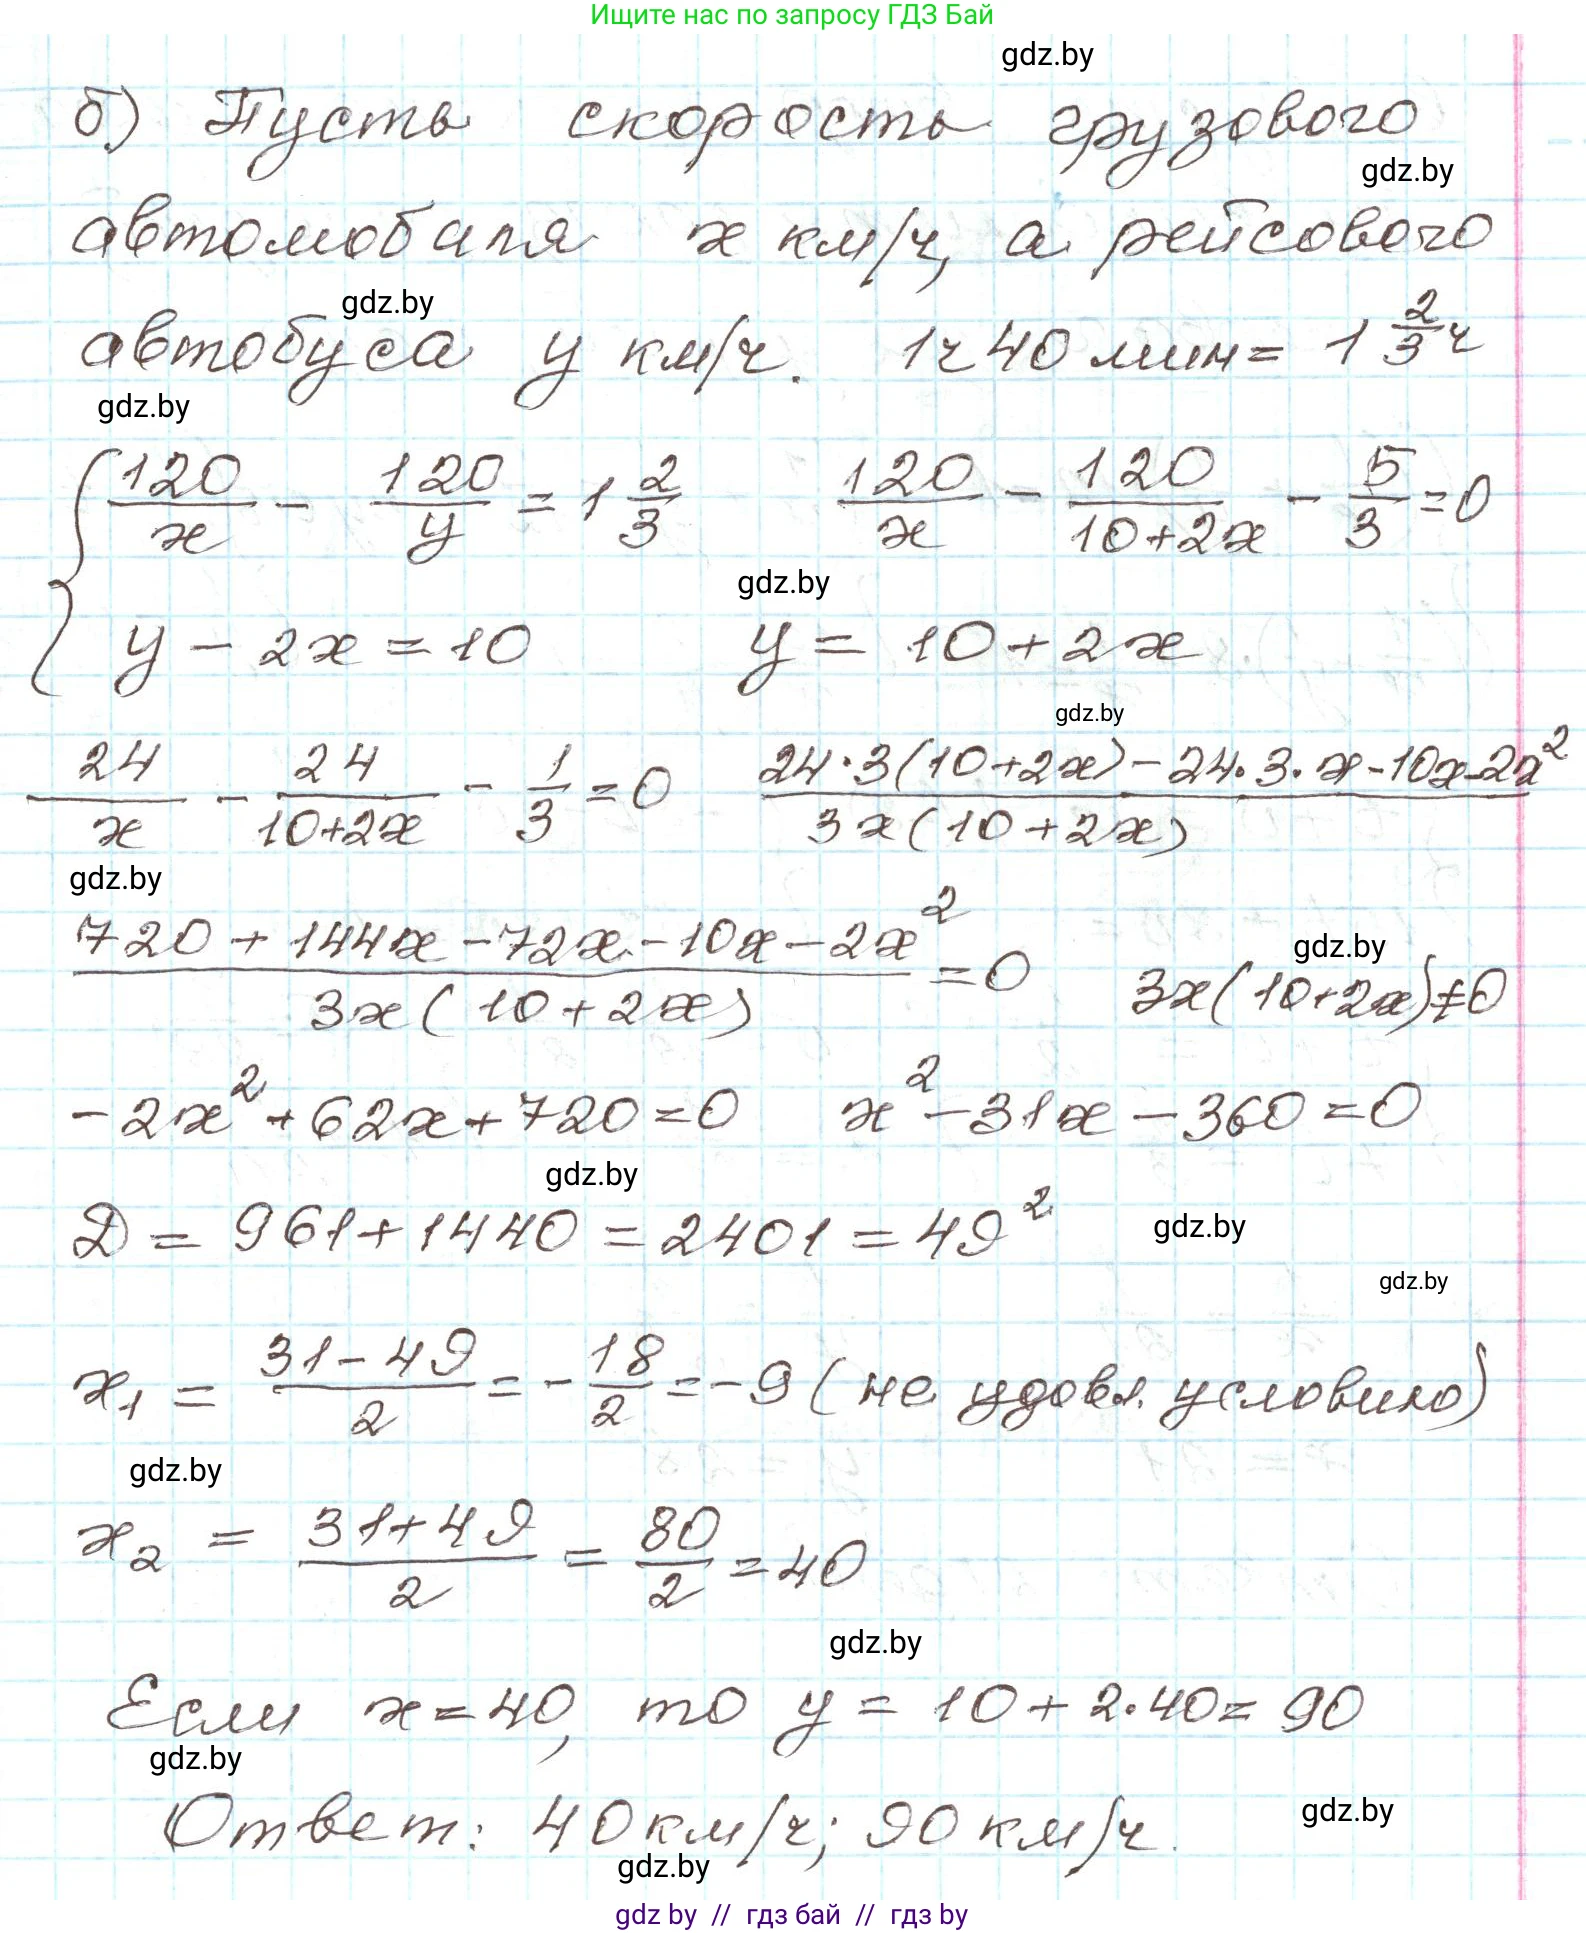 Ищите нас по запросу ГДЗ Бай
gdz.by
б) Пусть скорость грузового
gdz.by
автомобиля x км/ч, а рейсового
gdz.by
автобуса y км/ч. 1ч 40 мин = 1 2/3 ч
gdz.by
{ 120/x - 120/y = 1 2/3 120/x - 120/(10+2x) - 5/3 = 0
gdz.by
y - 2x = 10 y = 10 + 2x
gdz.by
24/x - 24/(10+2x) - 1/3 = 0 (24·3(10+2x) - 24·3·x - 10x - 2x²)/(3x(10+2x))
gdz.by
(720 + 144x - 72x - 10x - 2x²)/(3x(10+2x)) = 0 3x(10+2x)≠0
gdz.by
-2x² + 62x + 720 = 0 x² - 31x - 360 = 0
gdz.by
D = 961 + 1440 = 2401 = 49²
gdz.by
gdz.by
x₁ = (31 - 49)/2 = - 18/2 = -9 (не удовл. условию)
gdz.by
x₂ = (31 + 49)/2 = 80/2 = 40
gdz.by
Если x = 40, то y = 10 + 2·40 = 90
gdz.by
Ответ: 40 км/ч; 90 км/ч.
gdz.by
gdz.by
gdz by // гдз бай // гдз by